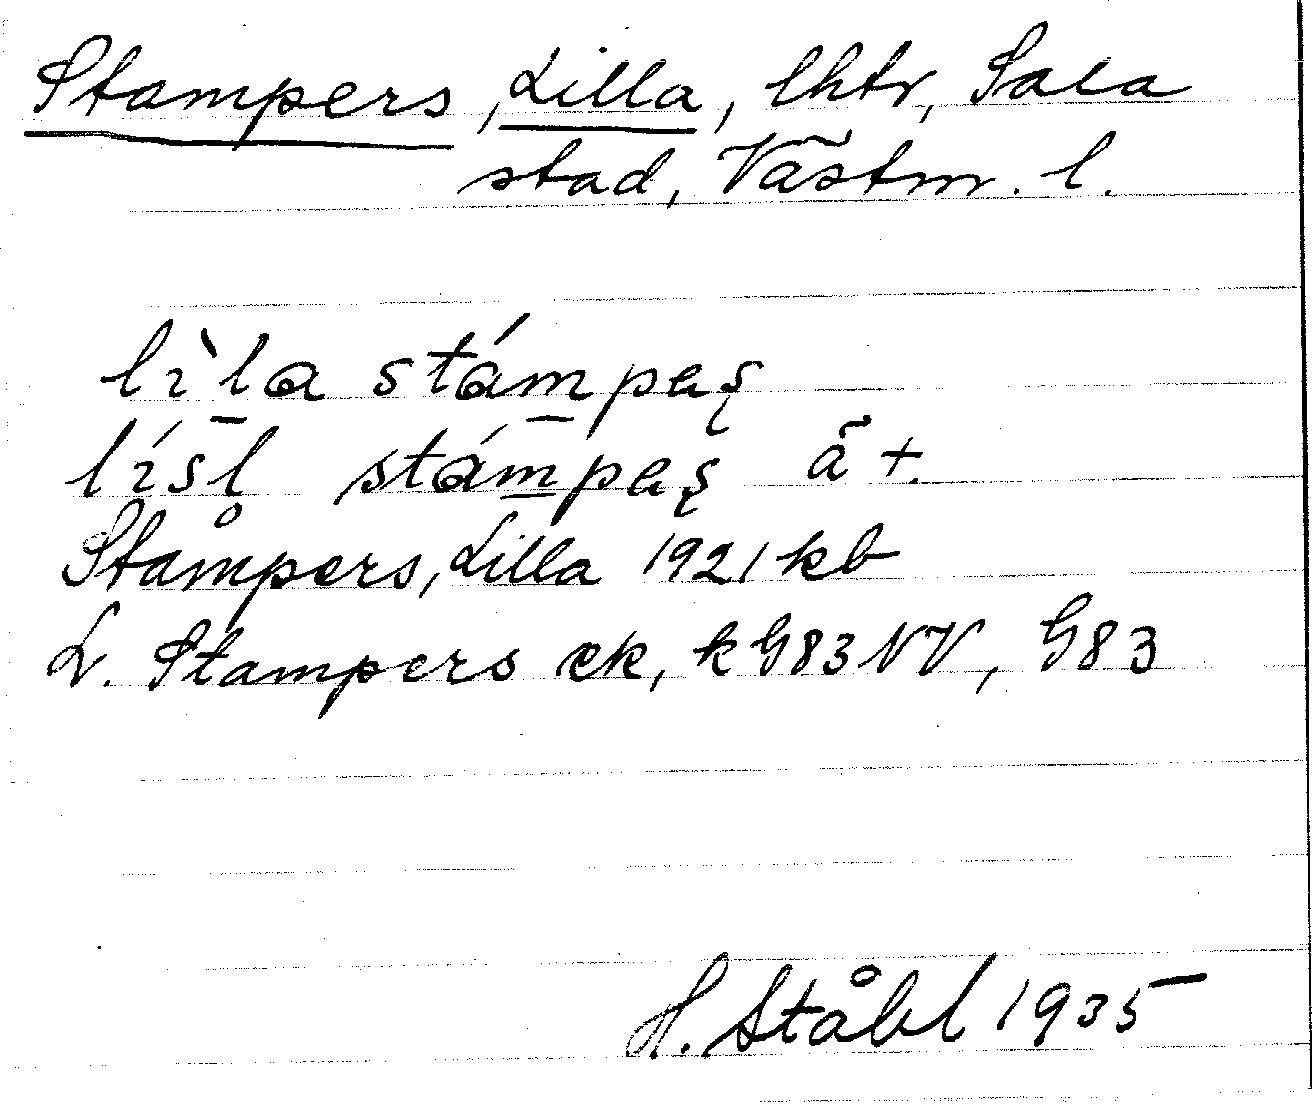 Stampers, Lilla, lhtr, Sala
stad, Västm. l.
lìl̠a stám̠pаş
lísl stám̠pаş ä+.
Stampers, Lilla 1921 kb
L. Stampers ek, kG83NV, G83
H. Ståhl 1935